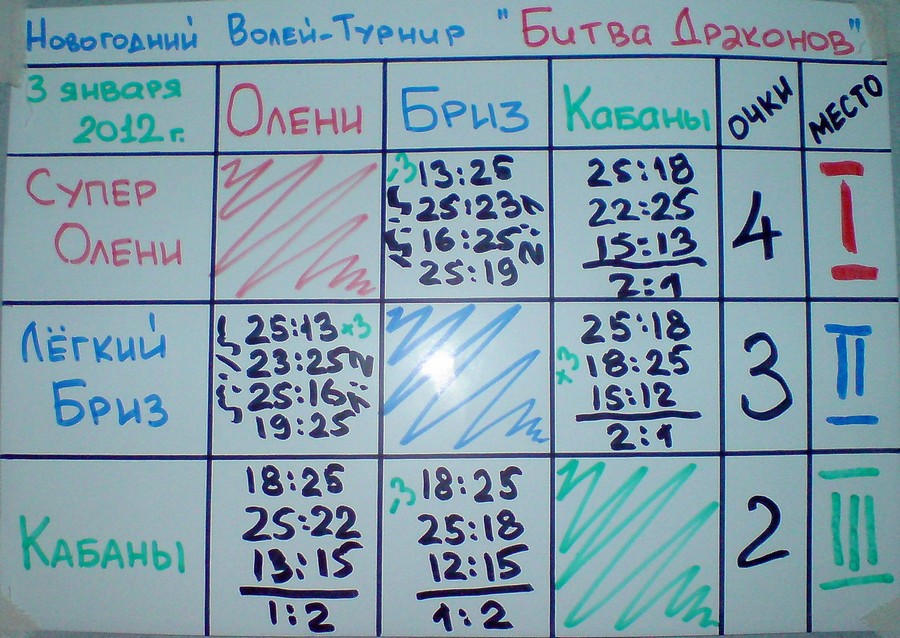 Новогодний Волей-Турнир "Битва Драконов"
3 января 2012г.
Олени
Бриз
Кабаны
ОЧКИ
МЕСТО
Супер Олени
13:25
25:23
16:25
25:19
25:18
22:25
15:13
2:1
4
I
Лёгкий Бриз
25:13 x3
23:25
25:16
19:25
25:18
x3 18:25
15:12
2:1
3
II
Кабаны
18:25
25:22
13:15
1:2
18:25
25:18
12:15
1:2
2
III